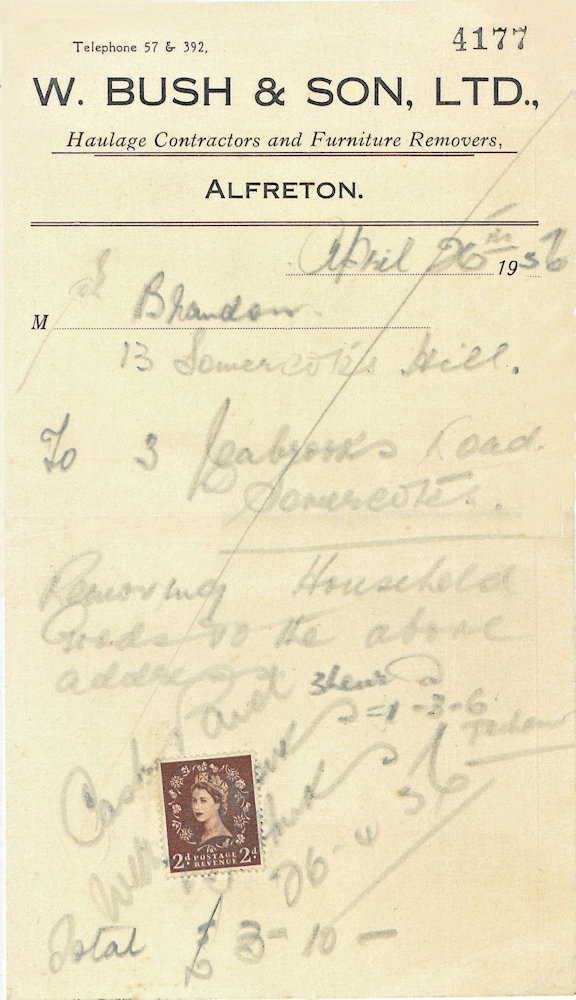 Telephone 57 & 392,
4177
W. BUSH & SON, LTD.,
Haulage Contractors and Furniture Removers,
ALFRETON.
April 26th 1956
M Brandon.
13 Somercotes Hill.
To 3 Seabrooks Road.
Somercotes.
Removing Household
Goods to the above
address
3 =1-3-6
Cash
With
2d POSTAGE REVENUE 2d
26-4 56
Total £ 3-10-